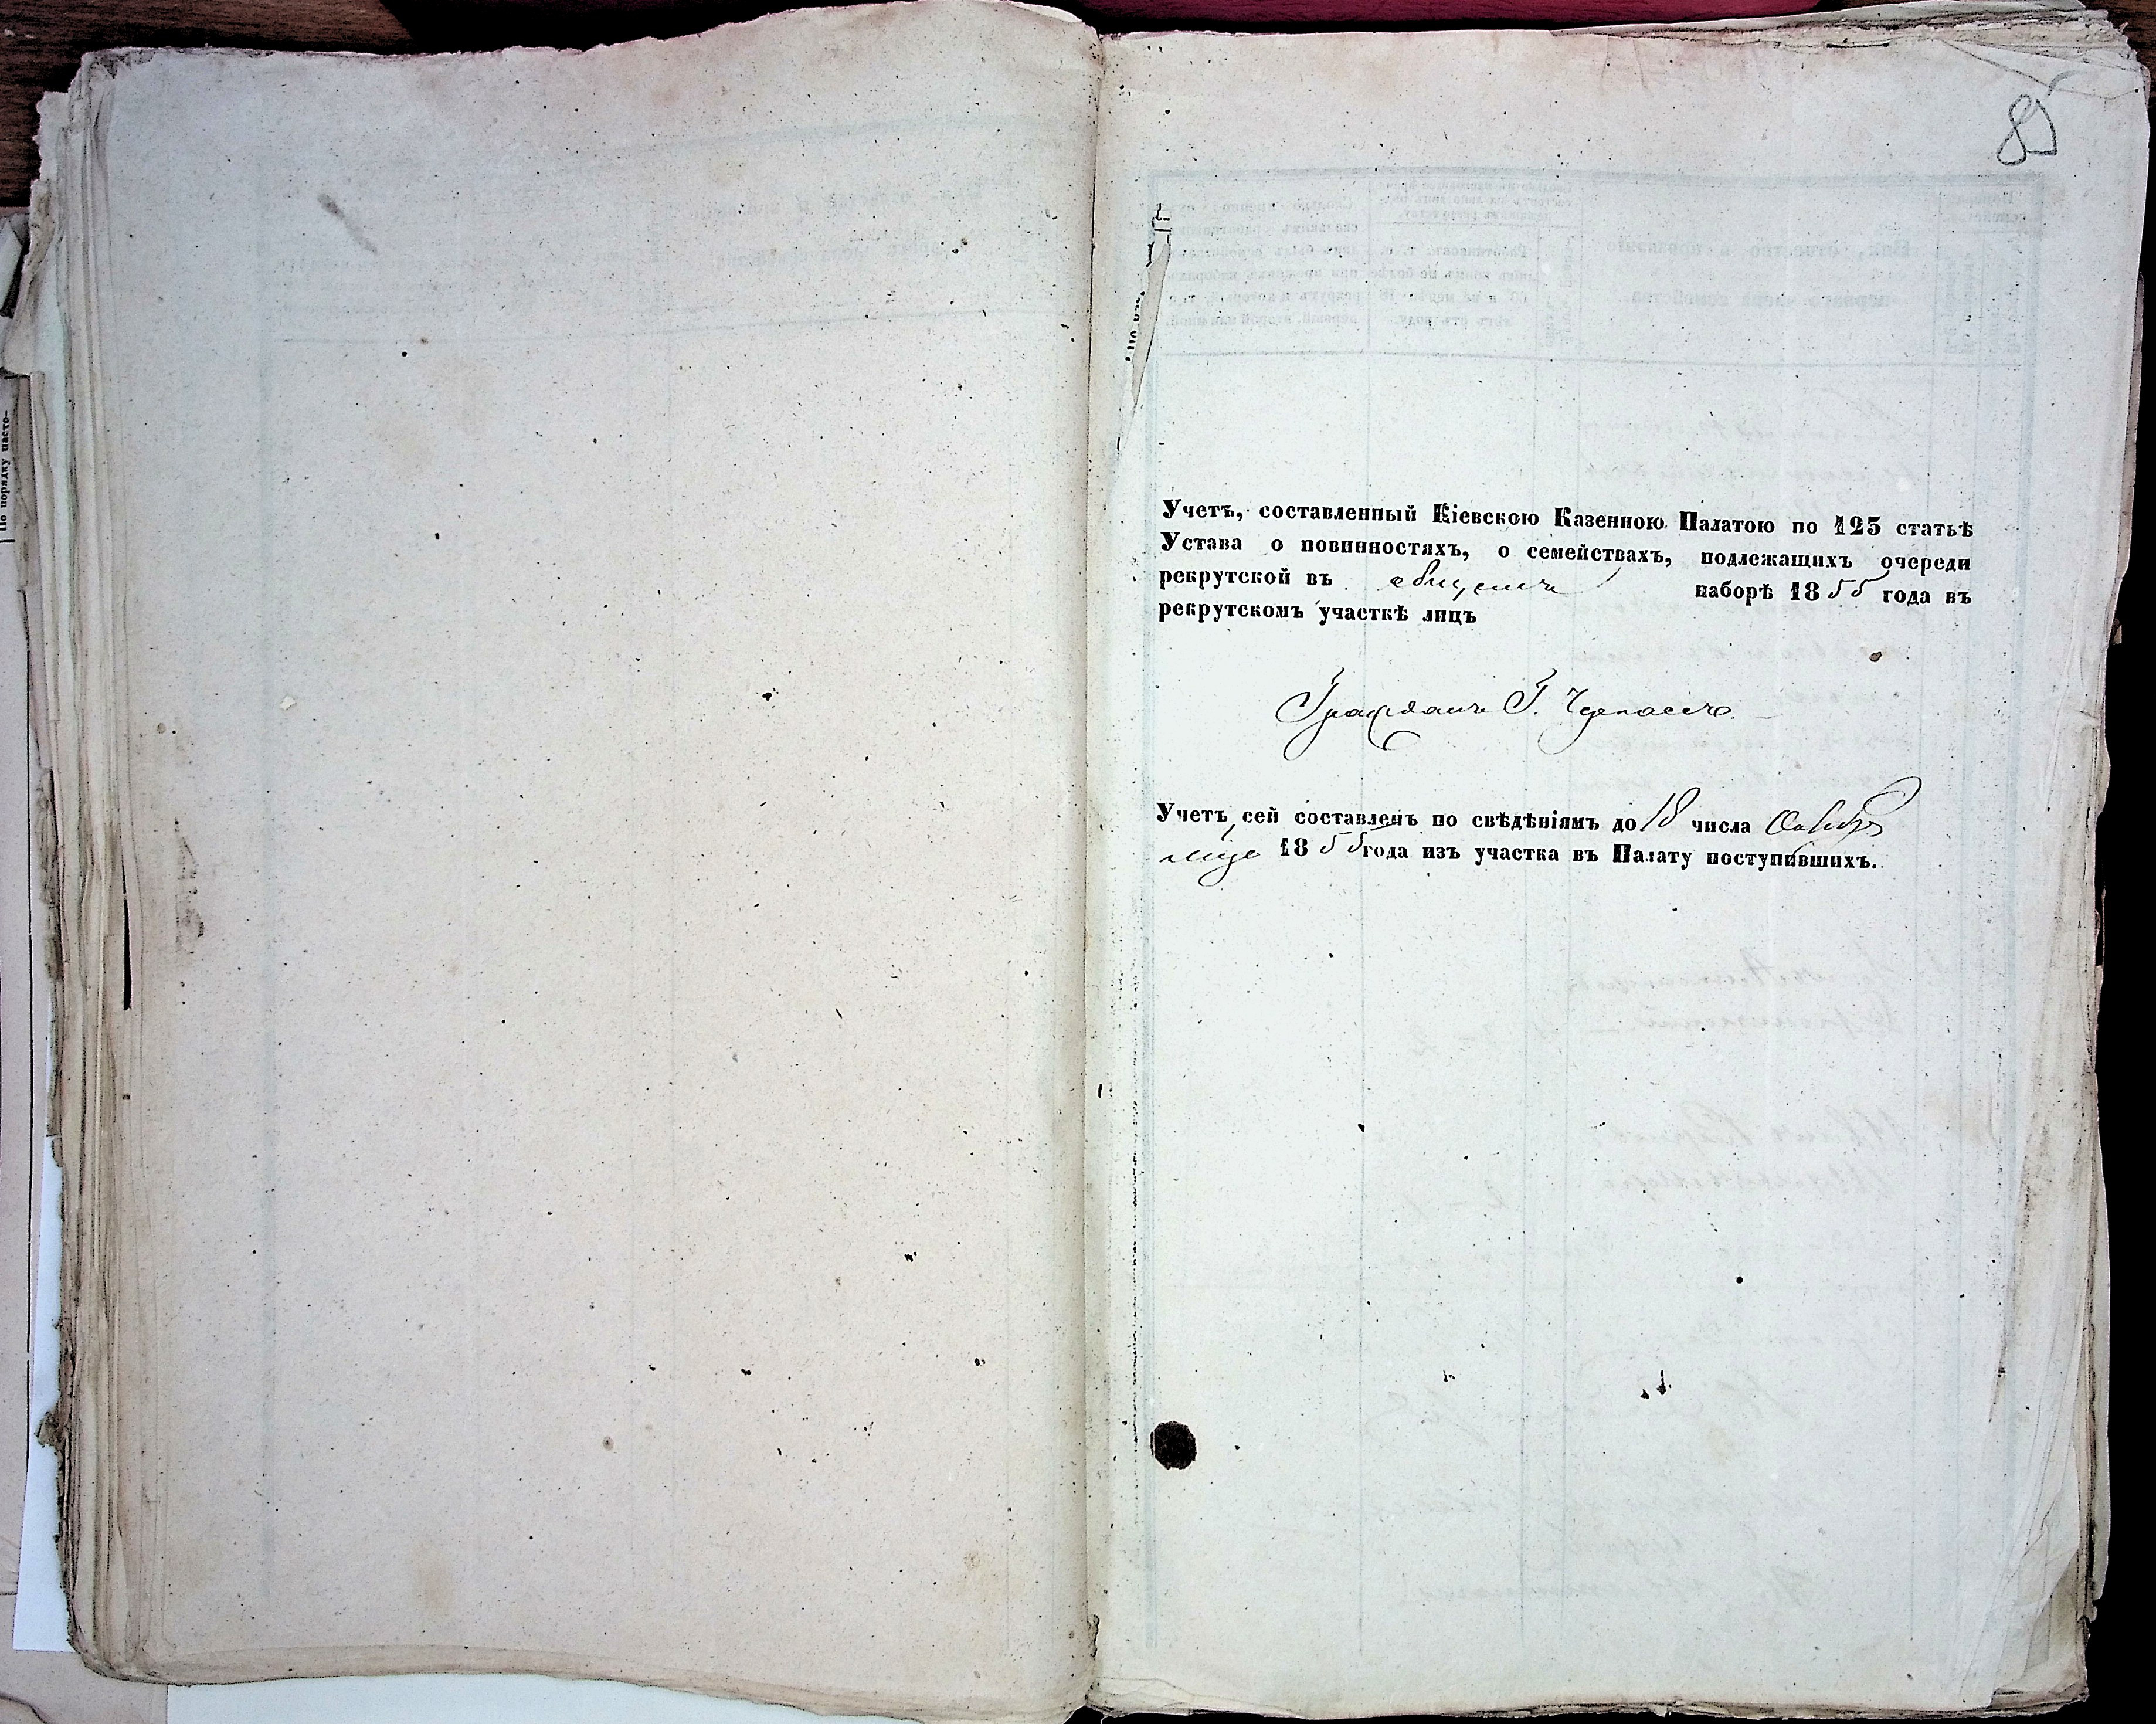 85
Учетъ, составленный Кіевскою Казенною Палатою по 123 статьѣ
Устава о повинностяхъ, о семействахъ, подлежащихъ очереди
рекрутской въ общемъ наборѣ 1855 года въ
рекрутскомъ участкѣ лицъ
Гражданъ Г. Черкассъ.
Учетъ сей составленъ по свѣдѣніямъ до 18 числа
18 55 года изъ участка въ Палату поступившихъ.
По порядку насто-